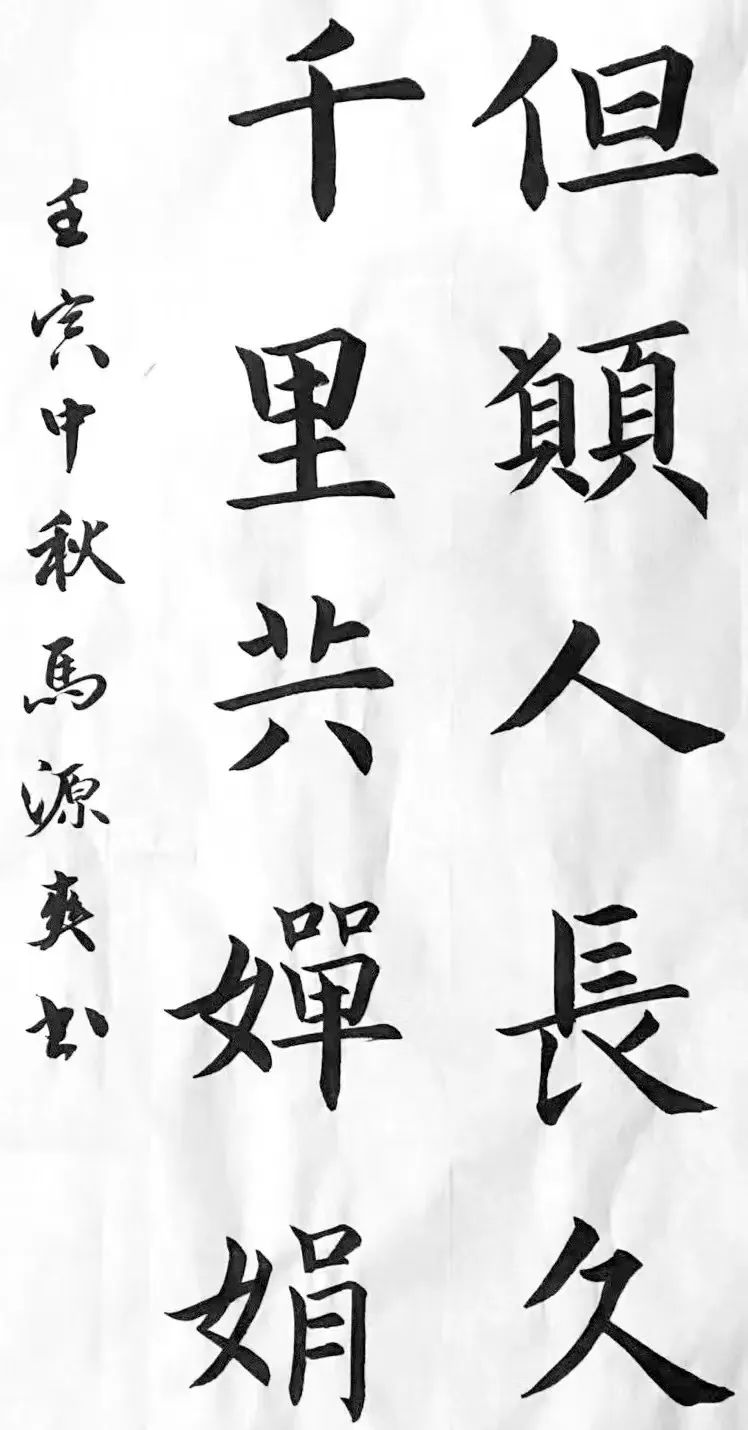 但願人長久
千里共嬋娟
壬寅中秋馬源爽书